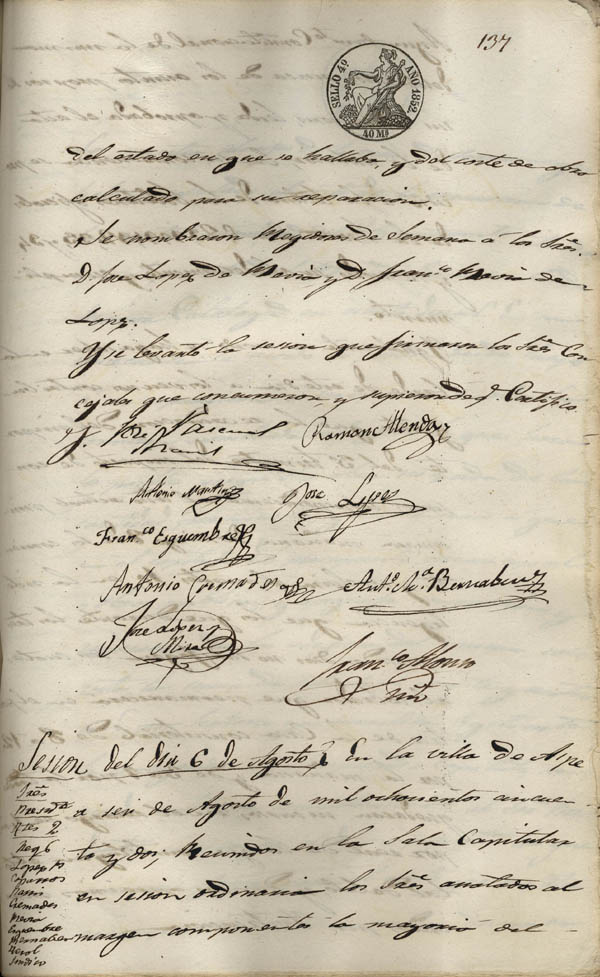 137
SELLO 4º AÑO 1852.
40 Ms
del estado en que se hallaba, y del corte de obra
calculado para su reparacion.
Se nombraron Regidores de Semana á los Sres.
D. Jose Lopez de y D. Franco de
Lopez.
Y se levantó la sesion que firmaron los Sres Con
cejales que concurrieron y supieron de q. Certifico.
Jose Pascual
Ramon Allenda
Antonio Martinez
Jose Lopez
Fran.co Esquembre
Antonio Cremades
Anto. Ma. Bernabeu
Jose Lopez
Mira
Fran.co Alonso
Srio
Sesion del dia 6 de Agosto En la villa de Aspe
á seis de Agosto de mil ochocientos cincuen
ta y dos; Reunidos en la Sala Capitular
en sesion ordinaria los Sres anotados al
margen componentes la mayoria del
Sres
Presdte
Ttes 2
Reg 6
Lopez
Cremades
Esquembre
Bernabeu
Sindico